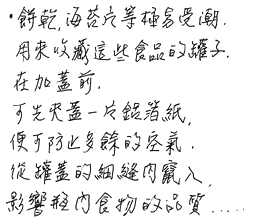 ·餅乾,海苔片等極易受潮.
用來收藏這些食品的罐子.
在加蓋前.
可先夾蓋一片鋁箔紙,
便可防止多餘的空氣.
從罐蓋的細縫內竄入,
影響瓶內食物的品質.....